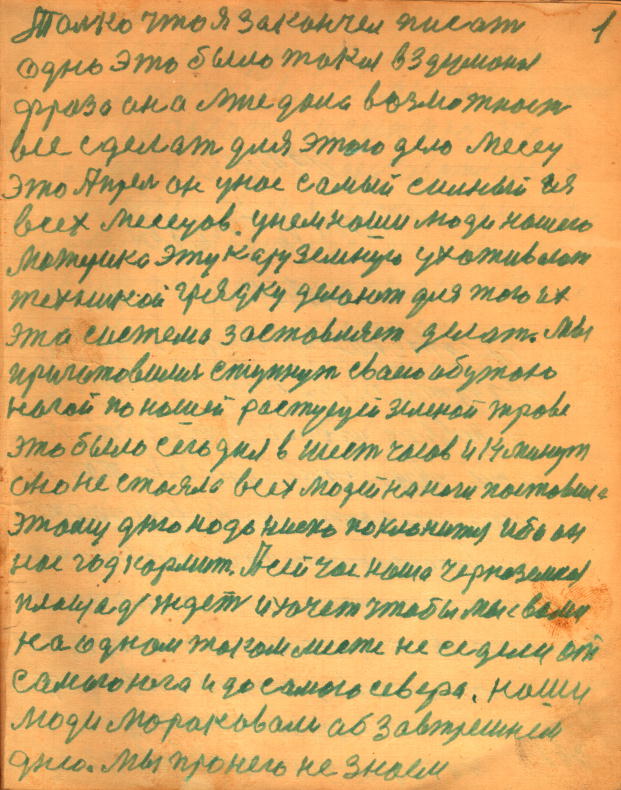 Только что я закончел писат 1
одно это было такая вздуманая
фраза она мне дала возможност
все сделат для этого дело месец
это Апрел он унас самый силный из
всех месецов. унем наши люди нашего
материка эту кару земную ухаживают
техникой грядку делают для того их
эта система заставляет делат. Мы
приготовилис ступнут своею обутою
ногой по нашей растущей зеленой траве
это было сегодня в шест часов и 14 минут
оно не стояла всех людей на ноги поставила
этому дню надо ниско поклонится ибо он
нас год кормит. А сей час наша черноземная
площад ждет и хочет чтобы мы с вами
на одном таком месте не седели от
самого юга и до самого севера. наши
люди мораковали об завтрешнем
дню. Мы про него не знаем